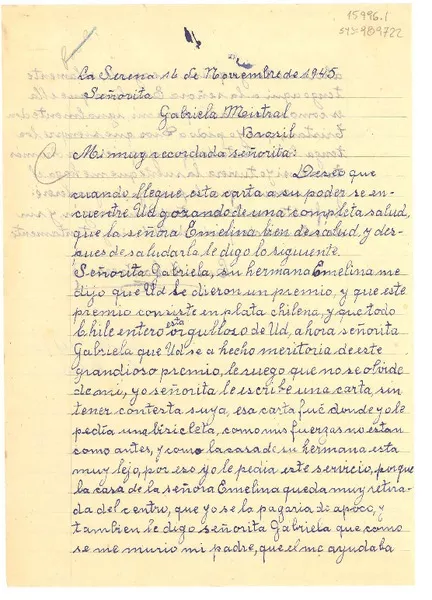 15996.1
543: 989722
La Serena 16 de Noviembre de 1945
Señorita
Gabriela Mistral
Brasil
Mi muy recordada señorita:
Deseo que
cuando llegue, esta carta a su poder se en-
cuentre Ud gozando de una completa salud,
que la señora Emelina bien de salud, y des-
pues de saludarla le digo lo siguiente.
Señorita Gabriela, su hermana Emelina me
dijo que Ud le dieron un premio, y que este
premio consiste en plata chilena, y que todo
Chile entero esta orgulloso de Ud, ahora señorita
Gabriela que Ud se a hecho meritoria de este
grandioso premio, le ruego que no se olvide
de mi, yo señorita le escribí una carta, sin
tener contesta suya, esa carta fué donde yo le
pedia una bicicleta, como mis fuerzas no estan
como antes, y como la casa de su hermana esta
muy lejo, por eso yo le pedia este servicio, porque
la casa de la señora Emelina queda muy retira-
da del centro, que yo se la pagaria de apoco, y
tambien le digo señorita Gabriela que como
se me murio mi padre, que el me ayudaba